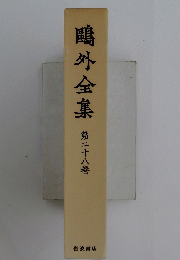 鷗外全集
第二十八巻
岩波書店